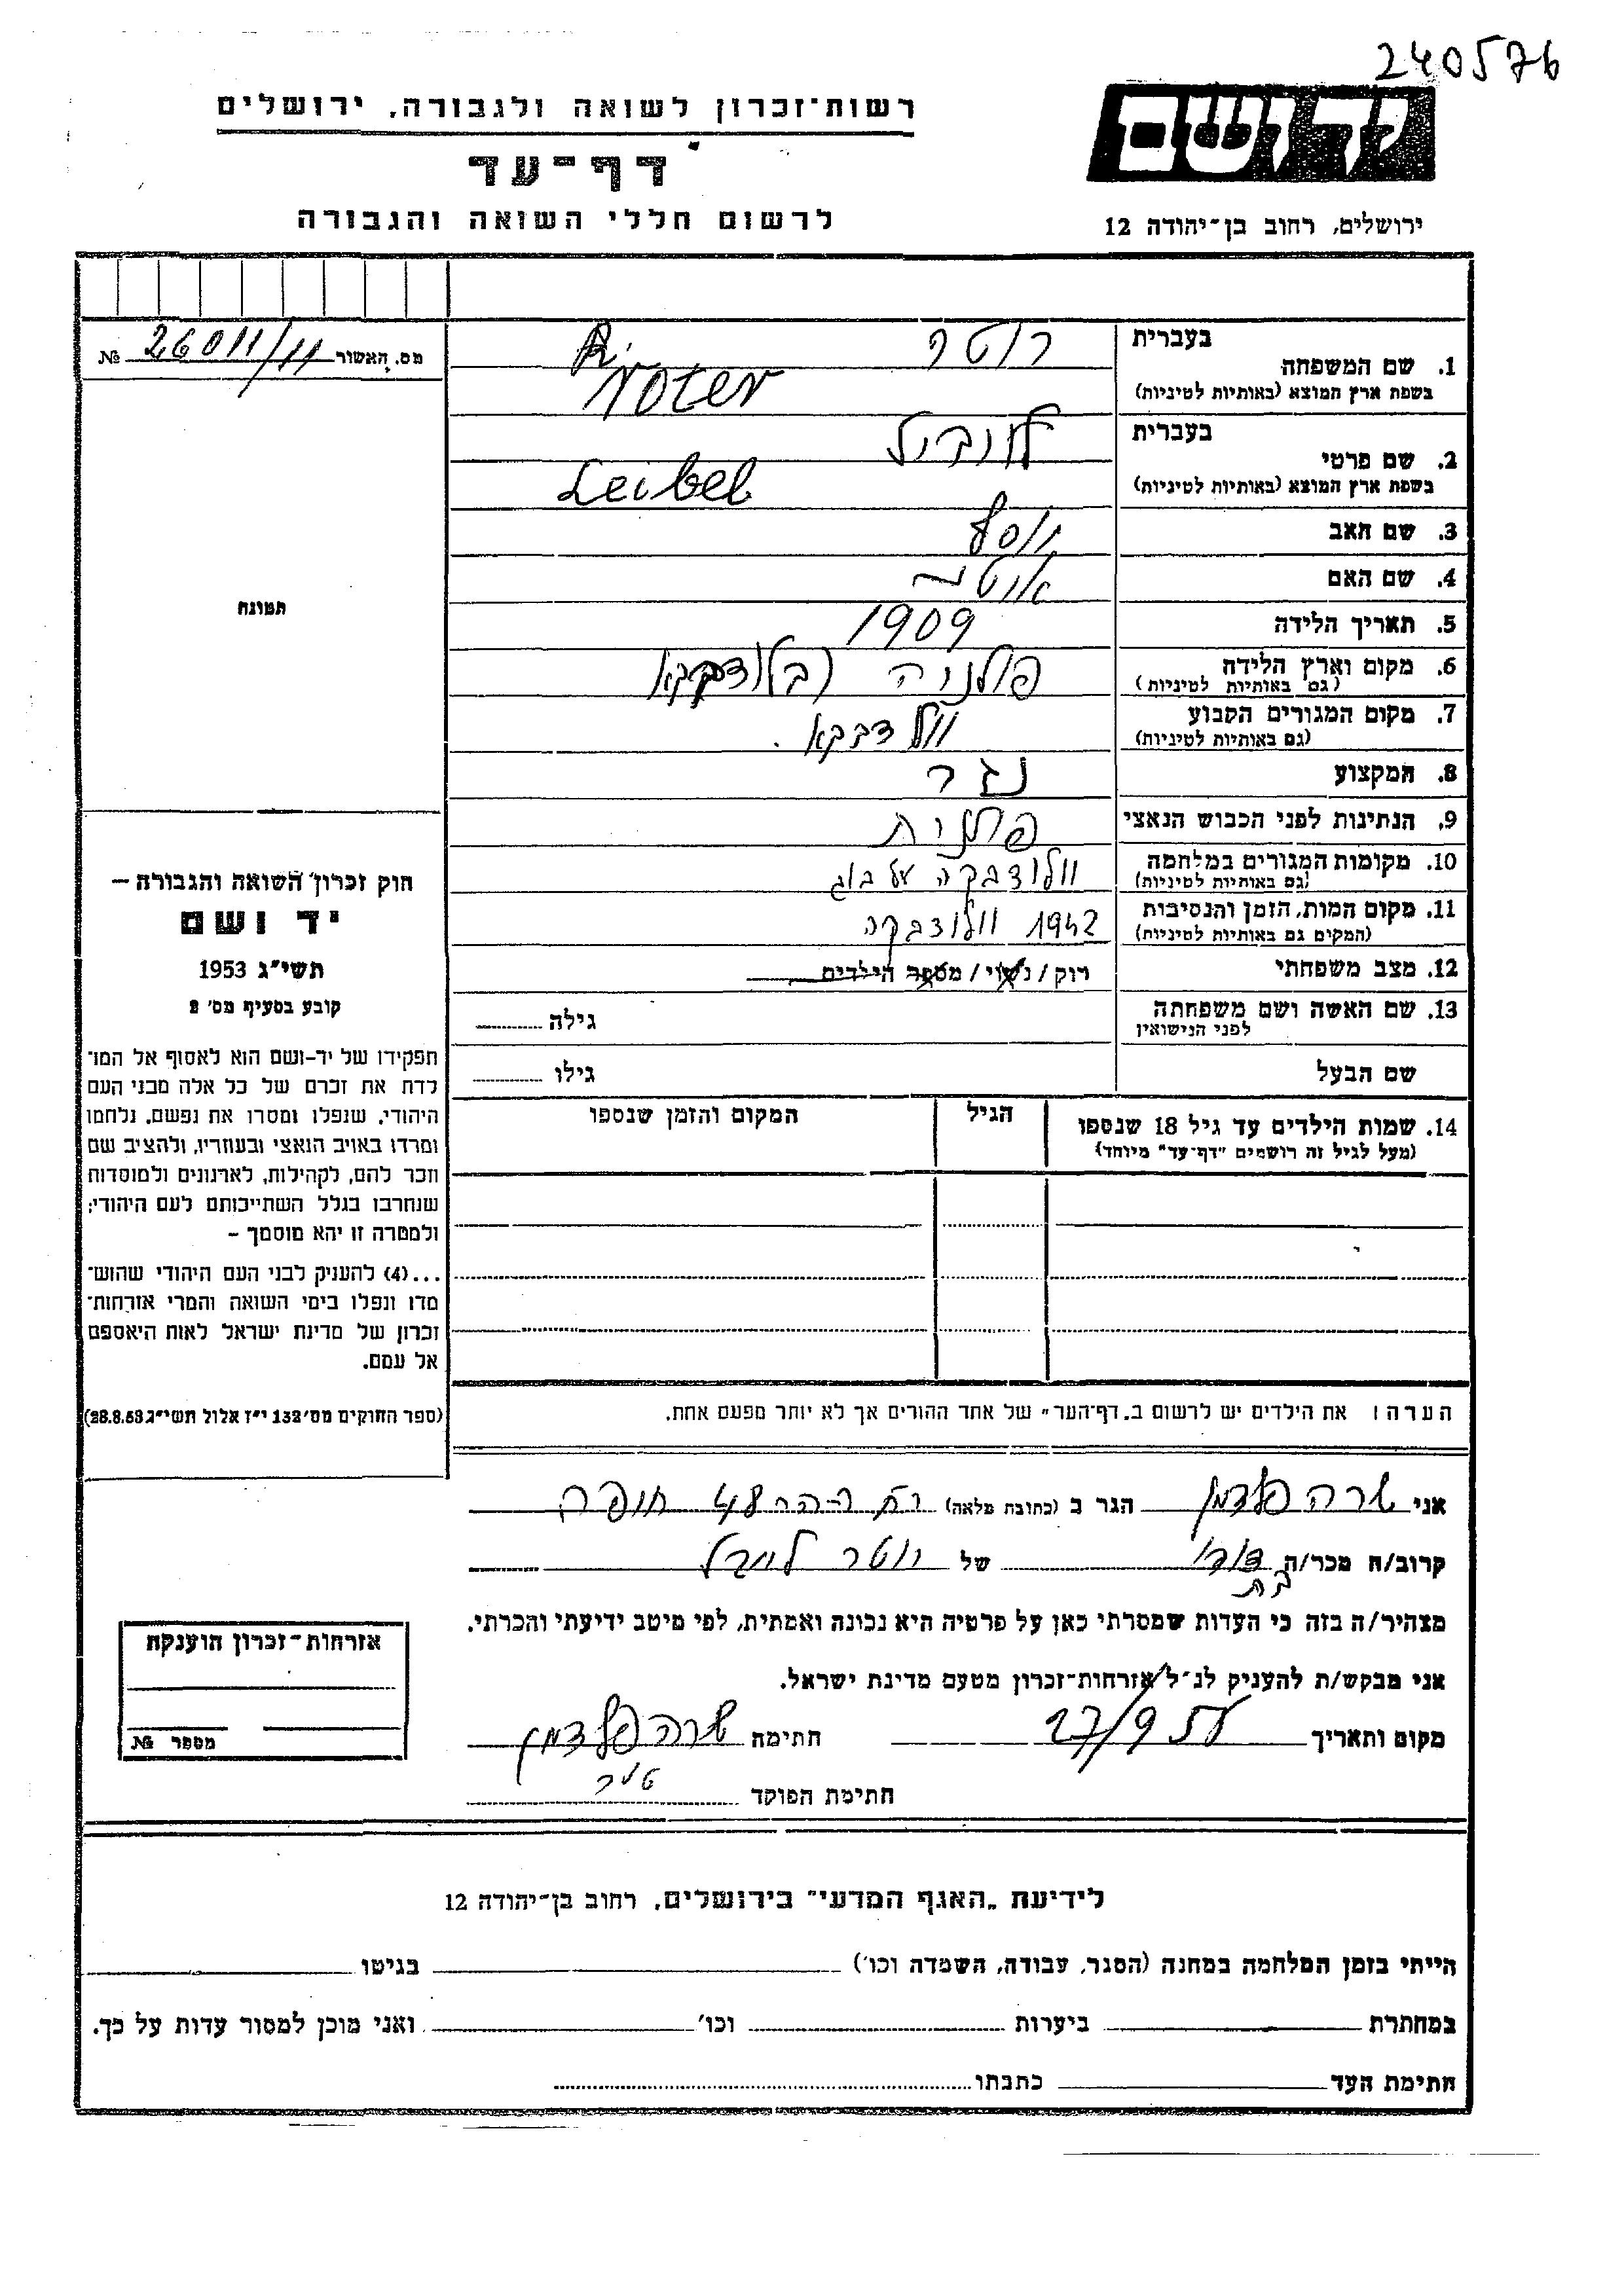 240576
יד ושם
רשות־זכרון לשואה ולגבורה, ירושלים
דף־עד
לרשום חללי השואה והגבורה
ירושלים, רחוב בן־יהודה 12
מס. האשור 26011/11 №
1. שם המשפחה
בעברית רוטר
בשפת ארץ המוצא (באותיות לטיניות) Roter
2. שם פרטי
בעברית לייביל
בשפת ארץ המוצא (באותיות לטיניות) Leibel
3. שם האב יוסף
4. שם האם
5. תאריך הלידה 1909
6. מקום וארץ הלידה פולניה
(גם באותיות לטיניות)
7. מקום המגורים הקבוע
(גם באותיות לטיניות)
8. המקצוע נגר
9. הנתינות לפני הכבוש הנאצי פולנית
10. מקומות המגורים במלחמה וולודבקה על בוג
(גם באותיות לטיניות)
11. מקום המות, הזמן והנסיבות 1942 וולודבקה
(המקום גם באותיות לטיניות)
12. מצב משפחתי רוק/נשוי/מספר הילדים
13. שם האשה ושם משפחתה גילה
לפני הנישואין
שם הבעל גילו
14. שמות הילדים עד גיל 18 שנספו הגיל המקום והזמן שנספו
(מעל לגיל זה רושמים "דף־עד" מיוחד)
הערה: את הילדים יש לרשום ב„דף־העד" של אחד ההורים אך לא יותר מפעם אחת.
תמונה
חוק זכרון השואה והגבורה —
יד ושם
תשי"ג 1953
קובע בסעיף מס' 2
תפקידו של יד־ושם הוא לאסוף אל המו־
לדת את זכרם של כל אלה מבני העם
היהודי, שנפלו ומסרו את נפשם, נלחמו
ומרדו באויב הנאצי ובעוזריו, ולהציב שם
וזכר להם, לקהילות, לארגונים ולמוסדות
שנחרבו בגלל השתייכותם לעם היהודי;
ולמטרה זו יהא מוסמך —
...(4) להעניק לבני העם היהודי שהוש־
מדו ונפלו בימי השואה והמרי אזרחות־
זכרון של מדינת ישראל לאות היאספם
אל עמם.
(ספר החוקים מס' 132 י"ז אלול תשי"ג 28.8.53)
אני שרה פלדמן הגר ב (כתובת מלאה) חיפה
קרוב/ה מכר/ה בת דודי של רוטר לייבל
מצהיר/ה בזה כי העדות שמסרתי כאן על פרטיה היא נכונה ואמתית, לפי מיטב ידיעתי והכרתי.
אני מבקש/ת להעניק לנ"ל אזרחות־זכרון מטעם מדינת ישראל.
מקום ותאריך 27/9 57 חתימה שרה פלדמן
חתימת הפוקד
אזרחות־זכרון הוענקה
מספר №
לידיעת „האגף המדעי" בירושלים, רחוב בן־יהודה 12
הייתי בזמן המלחמה במחנה (הסגר, עבודה, השמדה וכו') בגיטו
במחתרת ביערות וכו' ואני מוכן למסור עדות על כך.
חתימת העד כתבתו